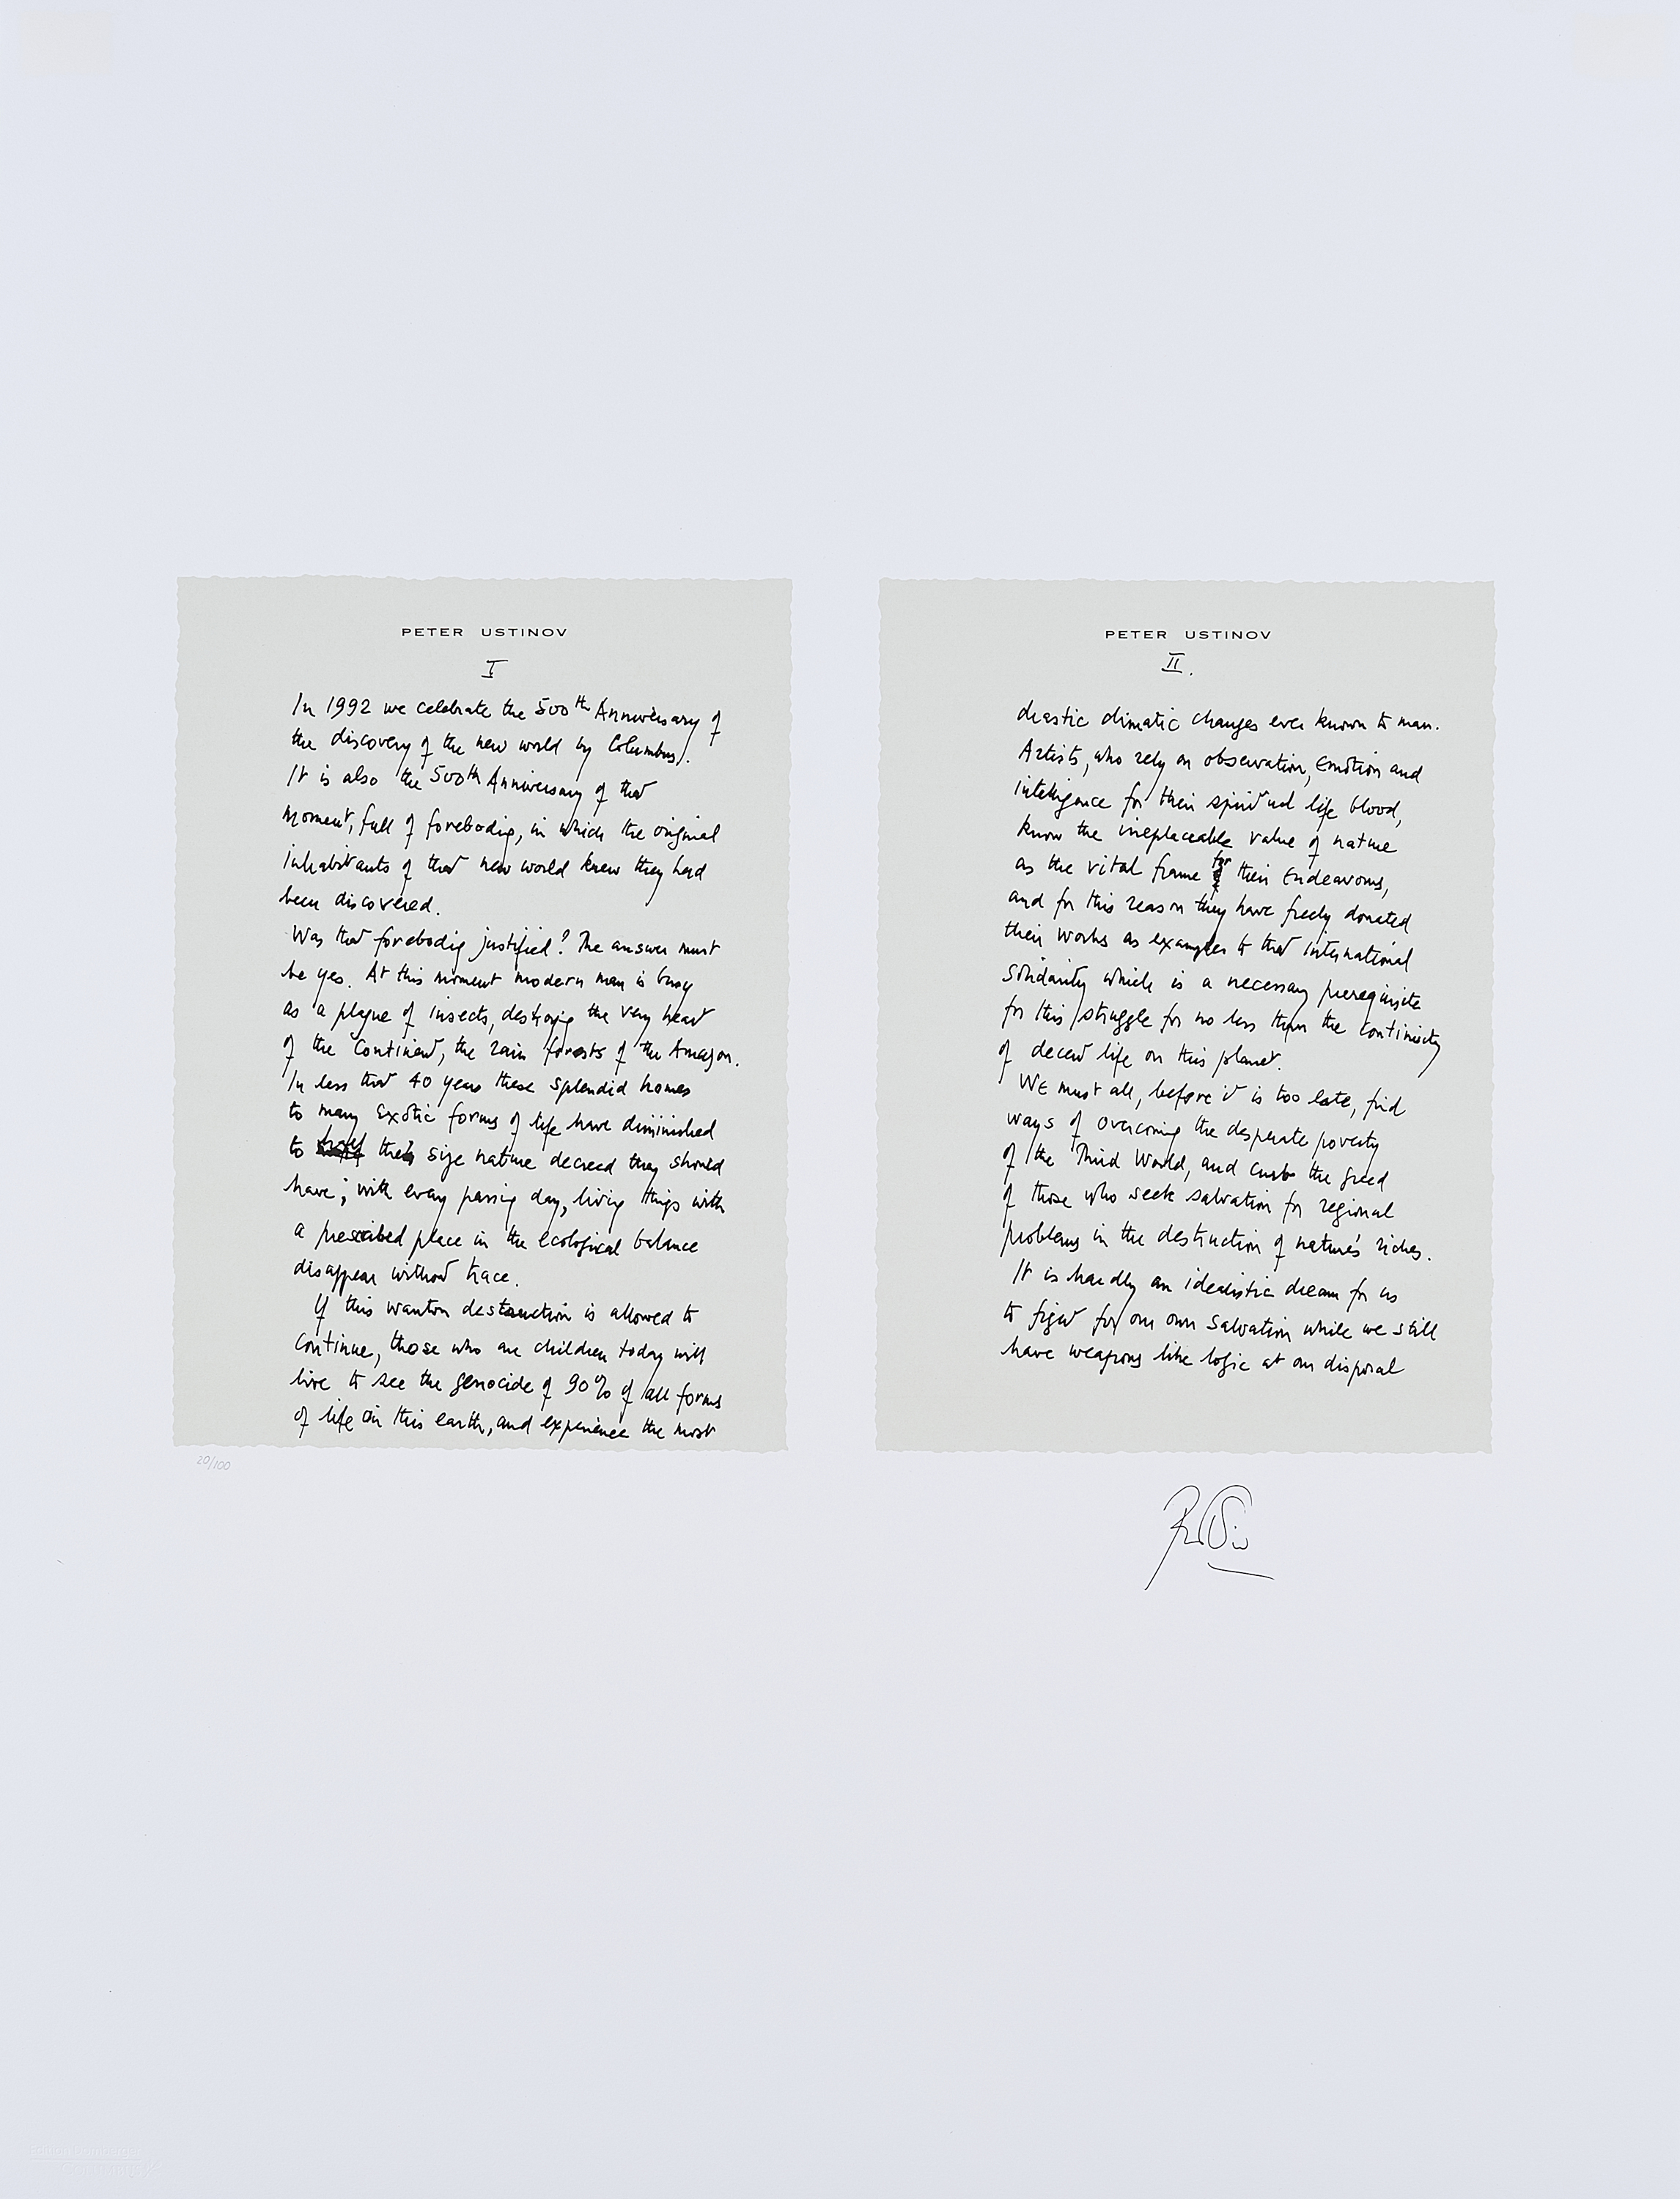 PETER USTINOV
I
In 1992 we celebrate the 500th Anniversary of
the discovery of the new world by Columbus.
It is also the 500th Anniversary of that
moment, full of forebodig, in which the original
inhabitants of that new world knew they had
been discovered.
Was that forebodig justified? The answer must
be yes. At this moment modern man is busy
as a plague of insects, destroyig the very heart
of the Continent, the rain forests of the Amazon.
In less that 40 years these splendid homes
to many exotic forms of life have diminished
to the size nature decreed they should
have; with every passing day, living things with
a prescribed place in the ecological balance
disappear without trace.
If this wanton destruction is allowed to
continue, those who are children today will
live to see the genocide of 90% of all forms
of life on this earth, and experience the most
20/100
PETER USTINOV
II.
drastic climatic changes ever known to man.
Artists, who rely on observation, Emotion and
intelligence for their spiritual life blood,
know the irreplaceable value of nature
as the vital frame for their Endeavours,
and for this reason they have freely donated
their works as examples to that international
solidarity which is a necessary prerequisite
for this struggle for no less than the continuity
of decent life on this planet.
We must all, before it is too late, find
ways of overcoming the desperate poverty
of the Third World, and curb the greed
of those who seek salvation for regional
problems in the destruction of nature's riches.
It is hardly an idealistic dream for us
to fight for our own salvation while we still
have weapons like logic at our disposal